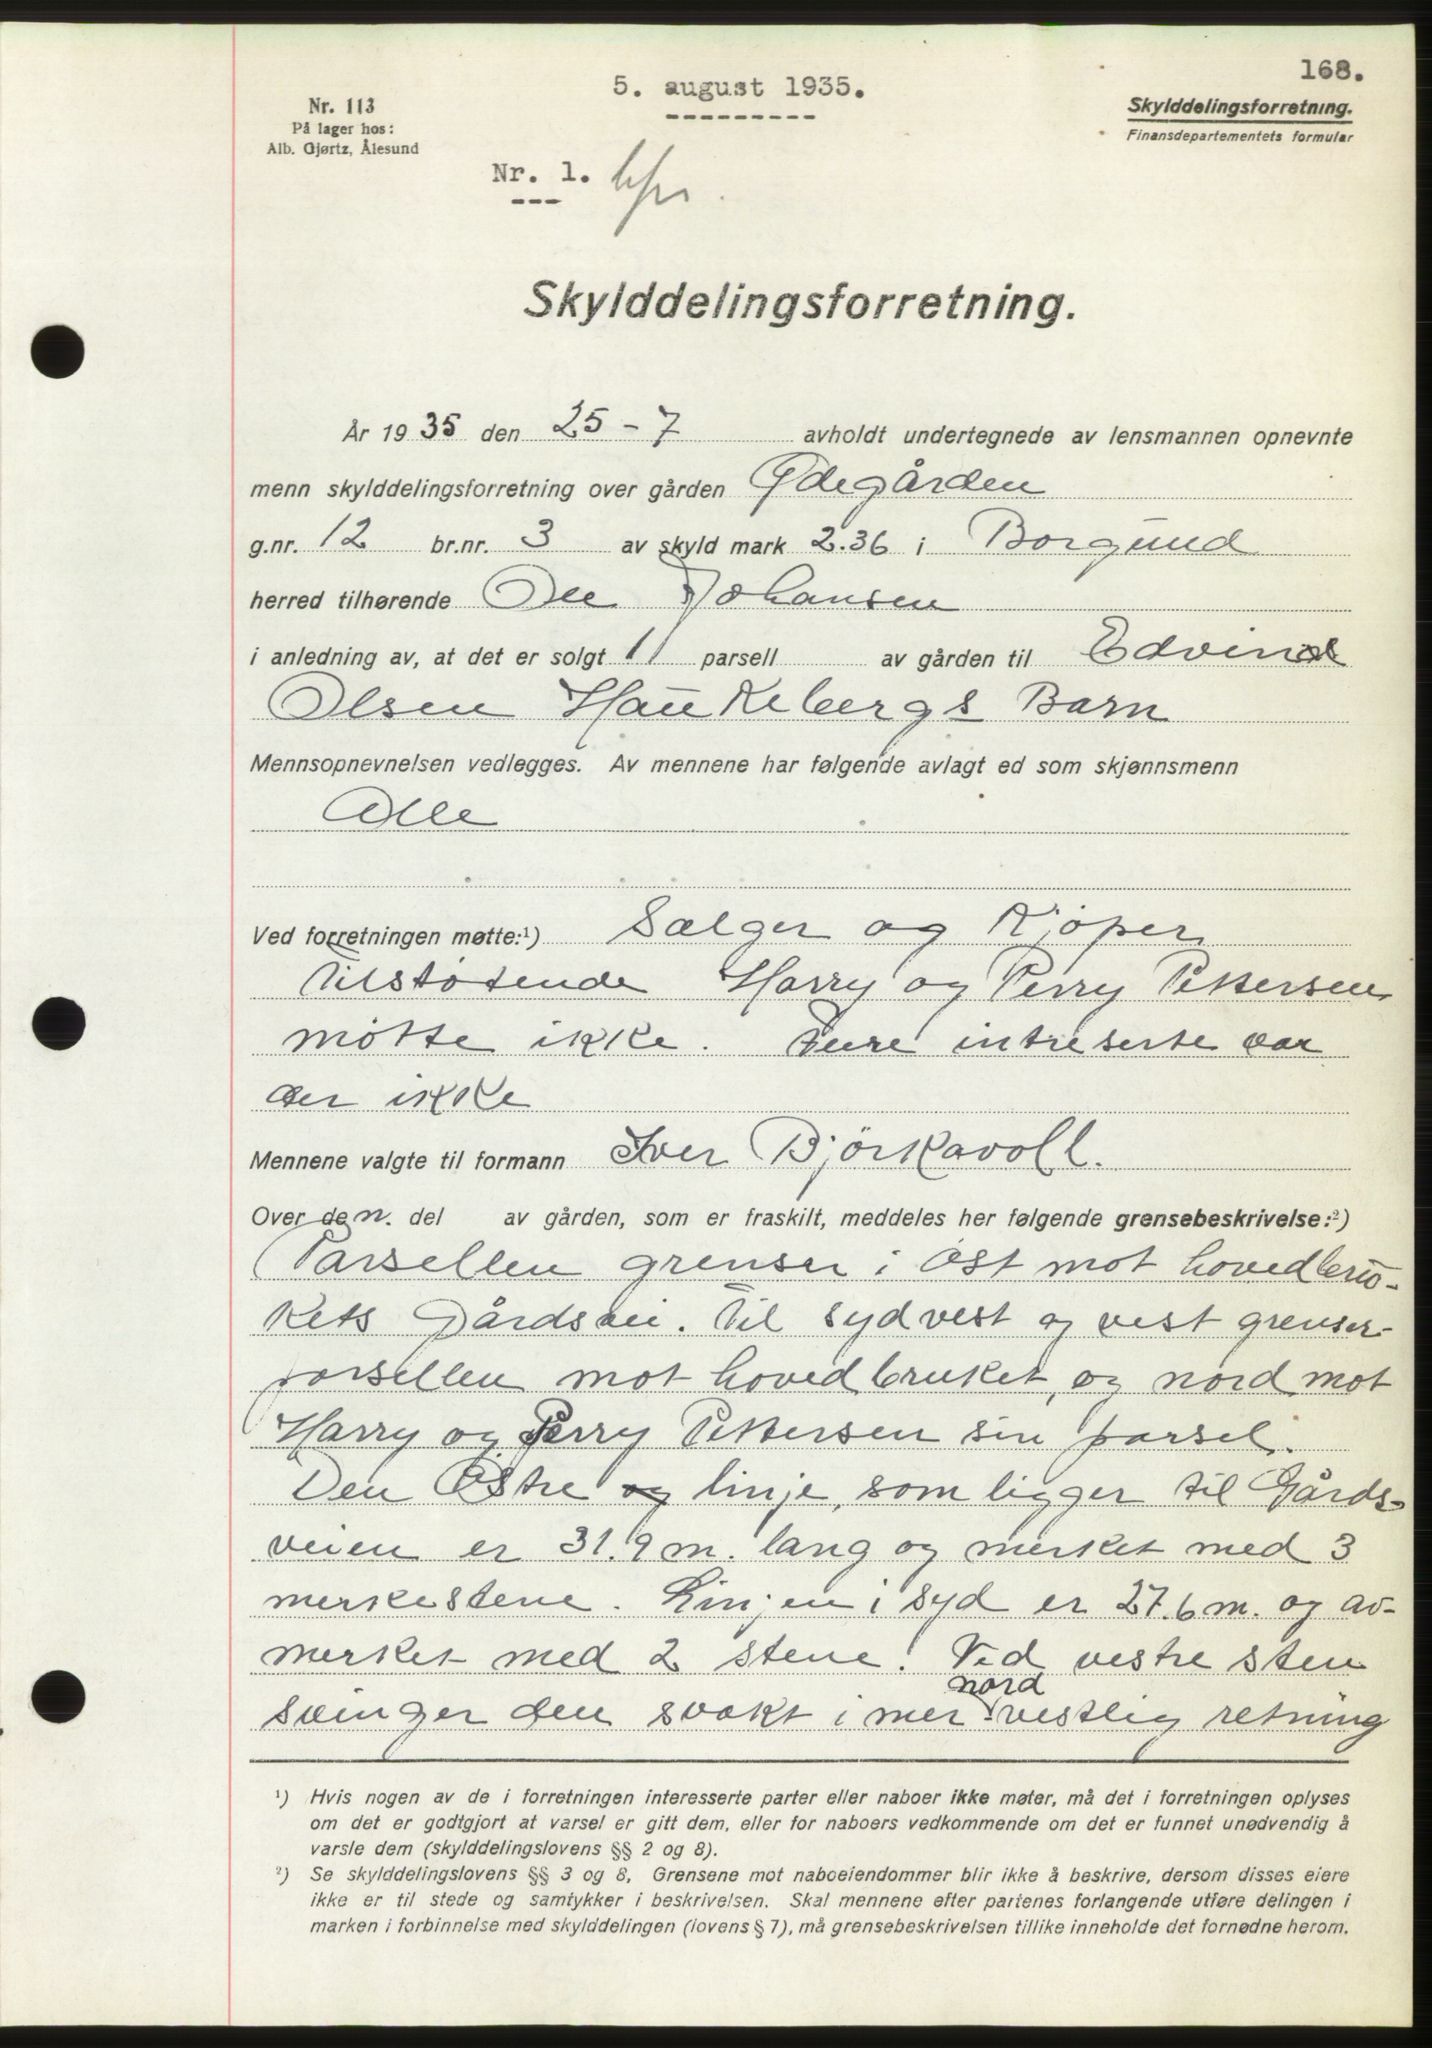 168.
5. august 1935.
Nr. 113
På lager hos:
Alb. Gjørtz, Ålesund
Skylddelingsforretning.
Finansdepartementets formular
Nr. 1.
Skylddelingsforretning.
År 1935 den 25 - 7 avholdt undertegnede av lensmannen opnevnte
menn skylddelingsforretning over gården Ødegården
g.nr. 12 br.nr. 3 av skyld mark 2.36 i Borgund
herred tilhørende Ole Johansen
i anledning av, at det er solgt 1 parsell av gården til Edvind
Olsen Haukebergs Barn
Mennsopnevnelsen vedlegges. Av mennene har følgende avlagt ed som skjønnsmenn
Alle
Ved forretningen møtte:¹) Sælger og Kjøper
Tilstøtende Harry og Perry Pettersen
møtte ikke. Flere intreserte var
der ikke
Mennene valgte til formann Iver Bjørkavoll.
Over den. del av gården, som er fraskilt, meddeles her følgende grensebeskrivelse:²)
Parsellen grenser i Øst mot hovedbru-
kets Gårdsvei. Til sydvest og vest grenser
parsellen mot hovedbruket, og nord mot
Harry og Perry Pettersen sin parsel.
Den Østre og linje, som ligger til Gårds-
veien er 31.9 m. lang og merket med 3
merkestene. Linjen i syd er 27.6 m. og av-
merket med 2 stene. Ved vestre sten
nord
svinger den svakt i mer vestlig retning
¹) Hvis nogen av de i forretningen interesserte parter eller naboer ikke møter, må det i forretningen oplyses
om det er godtgjort at varsel er gitt dem, eller for naboers vedkommende om det er funnet unødvendig å
varsle dem (skylddelingslovens §§ 2 og 8).
²) Se skylddelingslovens §§ 3 og 8. Grensene mot naboeiendommer blir ikke å beskrive, dersom disses eiere
ikke er til stede og samtykker i beskrivelsen. Skal mennene efter partenes forlangende utføre delingen i
marken i forbinnelse med skylddelingen (lovens § 7), må grensebeskrivelsen tillike inneholde det fornødne herom.